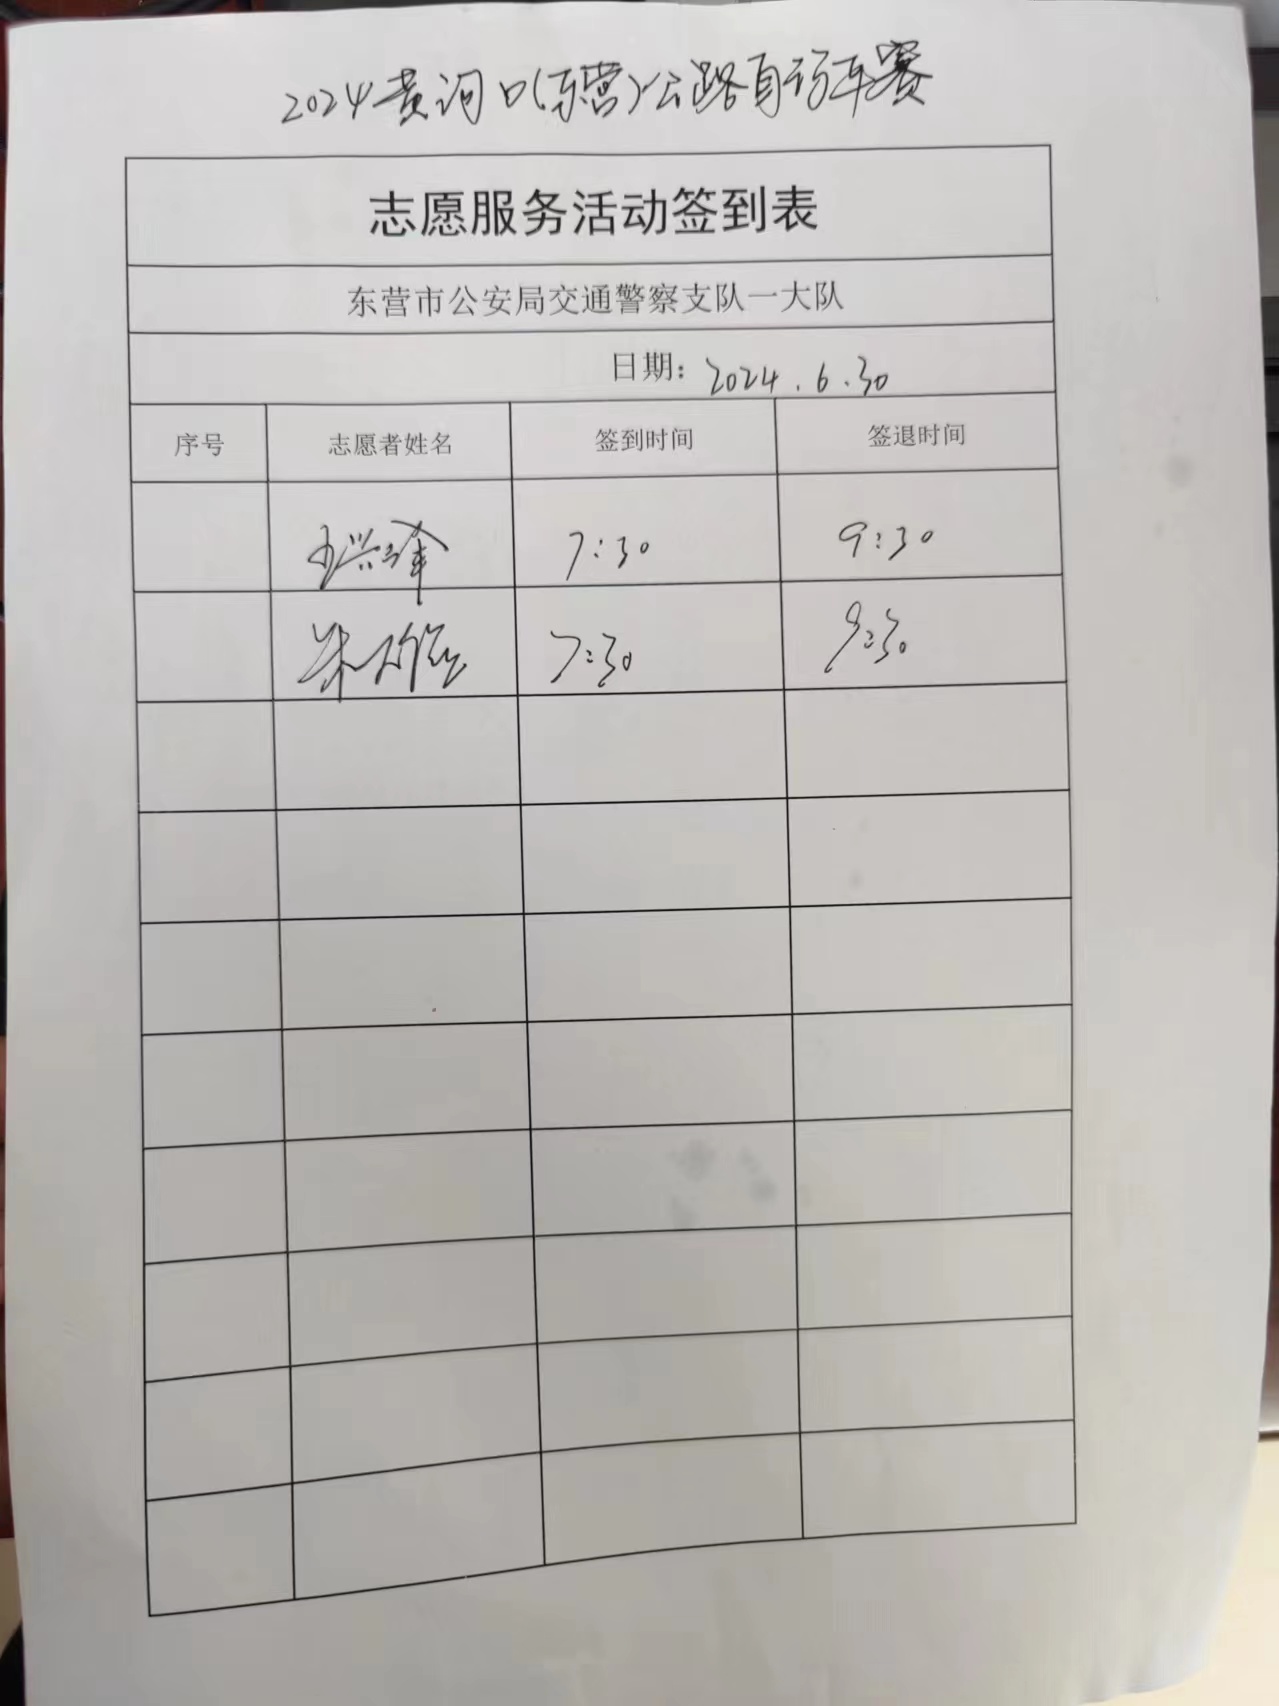 2024黄河口(东营)公路自行车赛
志愿服务活动签到表
东营市公安局交通警察支队一大队
日期: 2024.6.30
序号 志愿者姓名 签到时间 签退时间
7:30 9:30
7:30 9:30